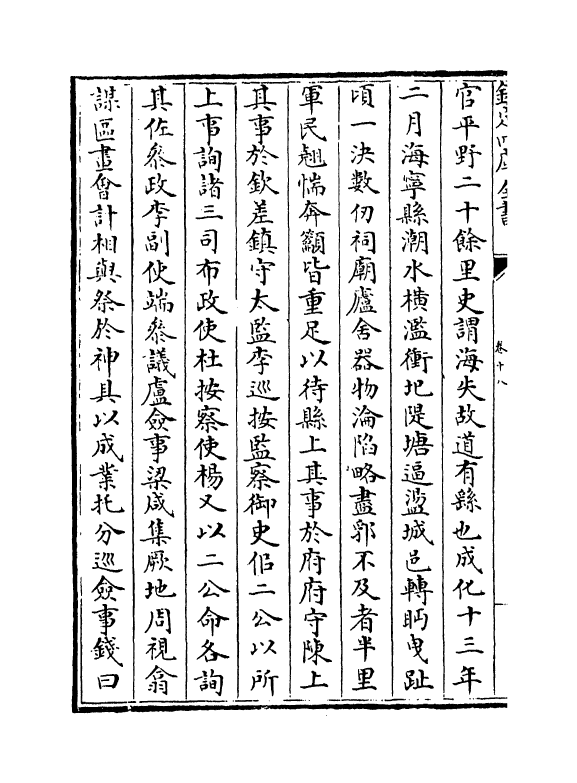 欽定四庫全書
卷十八
官平野二十餘里史謂海失故道有繇也成化十三年
二月海寧縣潮水橫濫衝圮隄塘逼盪城邑轉眄曳趾
頃一決數仞祠廟廬舍器物淪陷略盡郭不及者半里
軍民翹惴奔籲皆重足以待縣上其事於府府守陳上
其事於欽差鎮守太監李巡按監察御史侣二公以所
上事詢諸三司布政使杜按察使楊又以二公命各詢
其佐叅政李副使端叅議盧僉事梁咸集厥地周視翕
謀區畫會計相與祭於神具以成業托分巡僉事錢曰